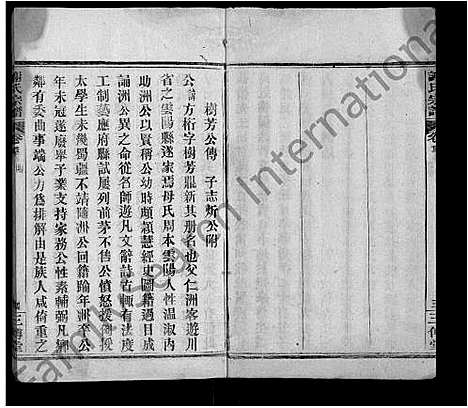 樹芳公傳 子志炘公附
公諱方桁字樹芳龍新其册名也父仁洲客遊川
省之雲陽縣遂家焉母氏周本雲陽人性溫淑內
助洲公以賢稱公幼時頗穎慧經史圖籍過目成
誦洲公異之命從名師遊凡文辭詩賦輒有法度
工制藝應府縣試屢列前茅不售公憤怒援例
太學生未幾蜀疆不靖隨洲公回籍踰年洲公
年未冠遂廢舉子業支持家務公性素輔弱凡鄉
鄰有委曲事端公力為排解由是族人咸倚重之
Eastern Season International